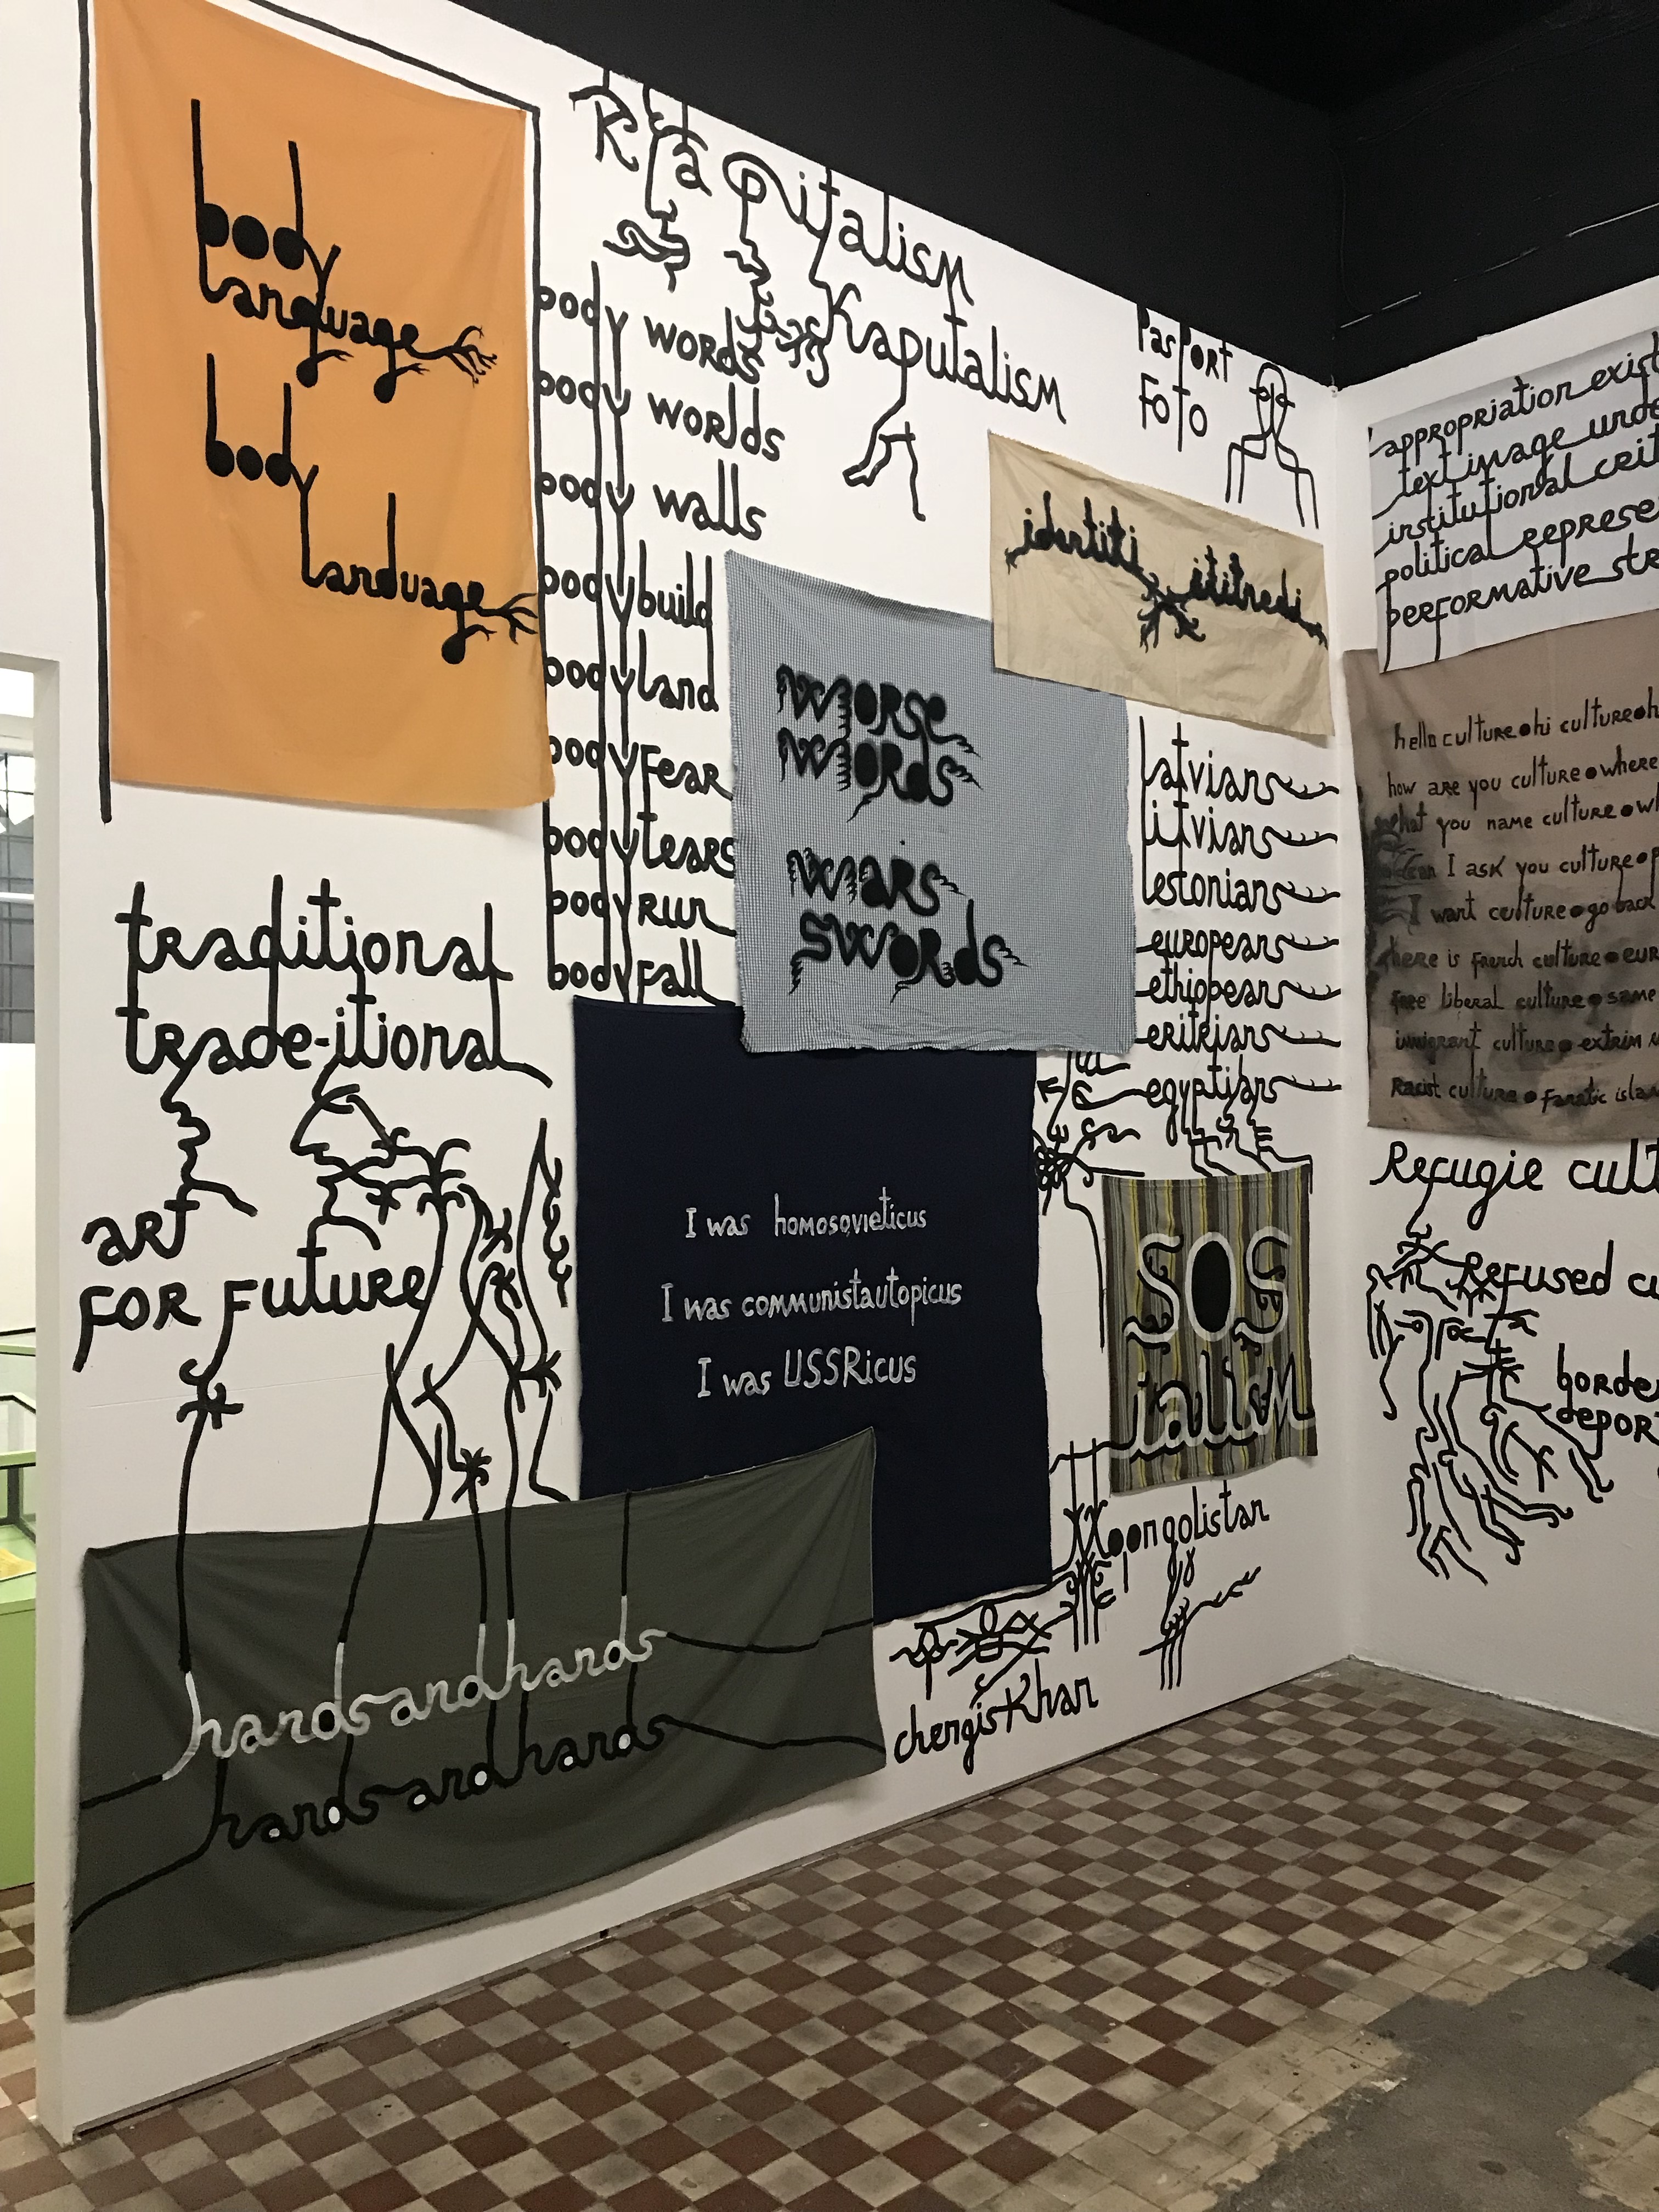 body
language
body
landuage
Kapitalism
Kaputalism
body words
body worlds
body walls
body build
body land
body Fear
body tears
body run
body Fall
PasPort
FoTo
identiti ititnedi
worse
words
wars
swords
latvians
litvians
estonians
europeans
ethiopeans
eritrians
egyptians
traditional
trade-itional
art
FOR FUTURE
I was homosovieticus
I was communistautopicus
I was USSRicus
SOS
ialism
Moongolistan
chengisKhan
hands and hands
hands and hands
appropriation
text image
institutional
political
performative
hello culture • hi culture •
how are you culture • where
what you name culture •
can I ask you culture •
I want culture • go back
here is french culture •
free liberal culture • same
immigrant culture • extrim
Racist culture • Fanatic
Refugie
Refused